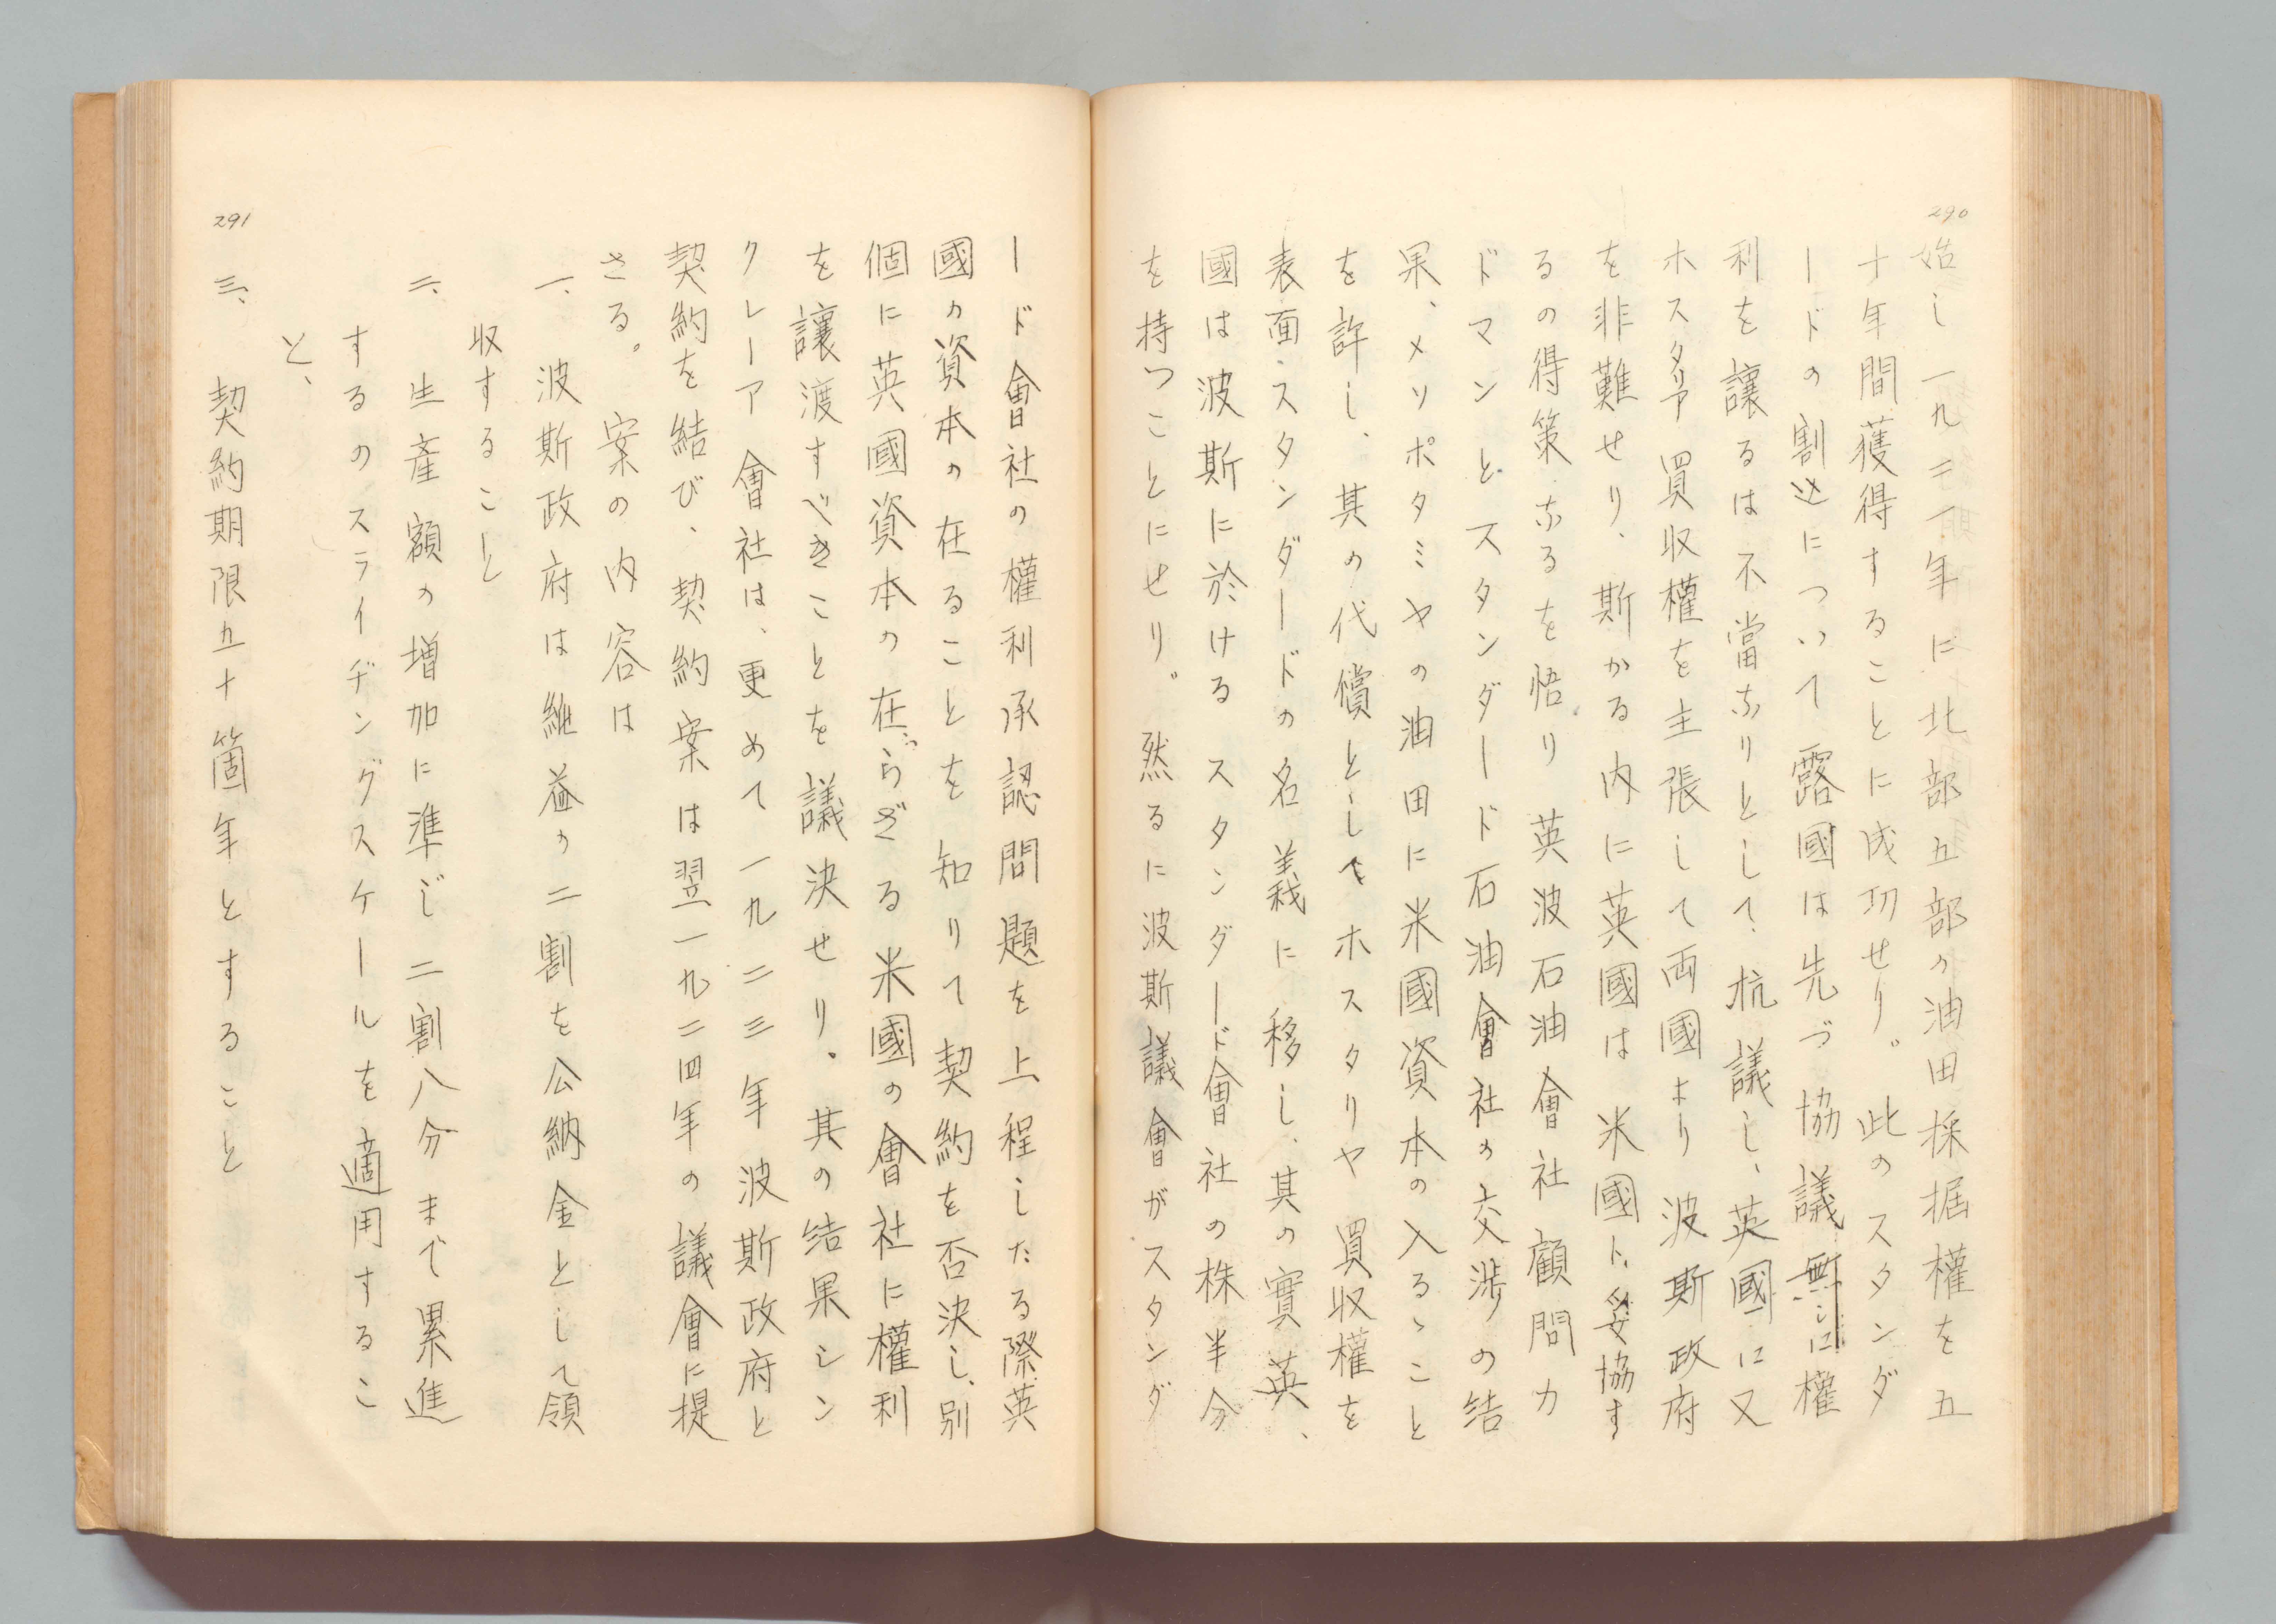 290
始し一九二一年に北部五部の油田採掘權を五
十年間獲得することに成功せり。此のスタンダ
ードの割込について露國は先づ協議無しに權
利を讓るは不當なりとして、抗議し、英國に又
ホスタリヤ買収權を主張して両國より波斯政府
を非難せり、斯かる内に英國は米國ト、妥協す
るの得策なるを悟り英波石油會社顧問カ
ドマンとスタンダード石油會社の交渉の結
果、メソポタミヤの油田に米國資本の入るゝこと
を許し、其の代償としてホスタリヤ買収權を
表面スタンダードの名義に移し、其の實英、
國は波斯に於けるスタンダード會社の株半分
を持つことにせり。然るに波斯議會がスタンダ
291
ード會社の權利承認問題を上程したる際英
國の資本の在ることを知りて契約を否決し、別
個に英國資本の在らざる米國の會社に權利
を讓渡すべきことを議決せり。其の結果シン
クレーア會社は、更めて一九二三年波斯政府と
契約を結び、契約案は翌一九二四年の議會に提
さる。案の内容は
一、波斯政府は純益の二割を公納金として領
収すること
二、生產額の増加に準じ二割八分まで累進
するのスライヂングスケールを適用するこ
と、
三、契約期限五十箇年とすること